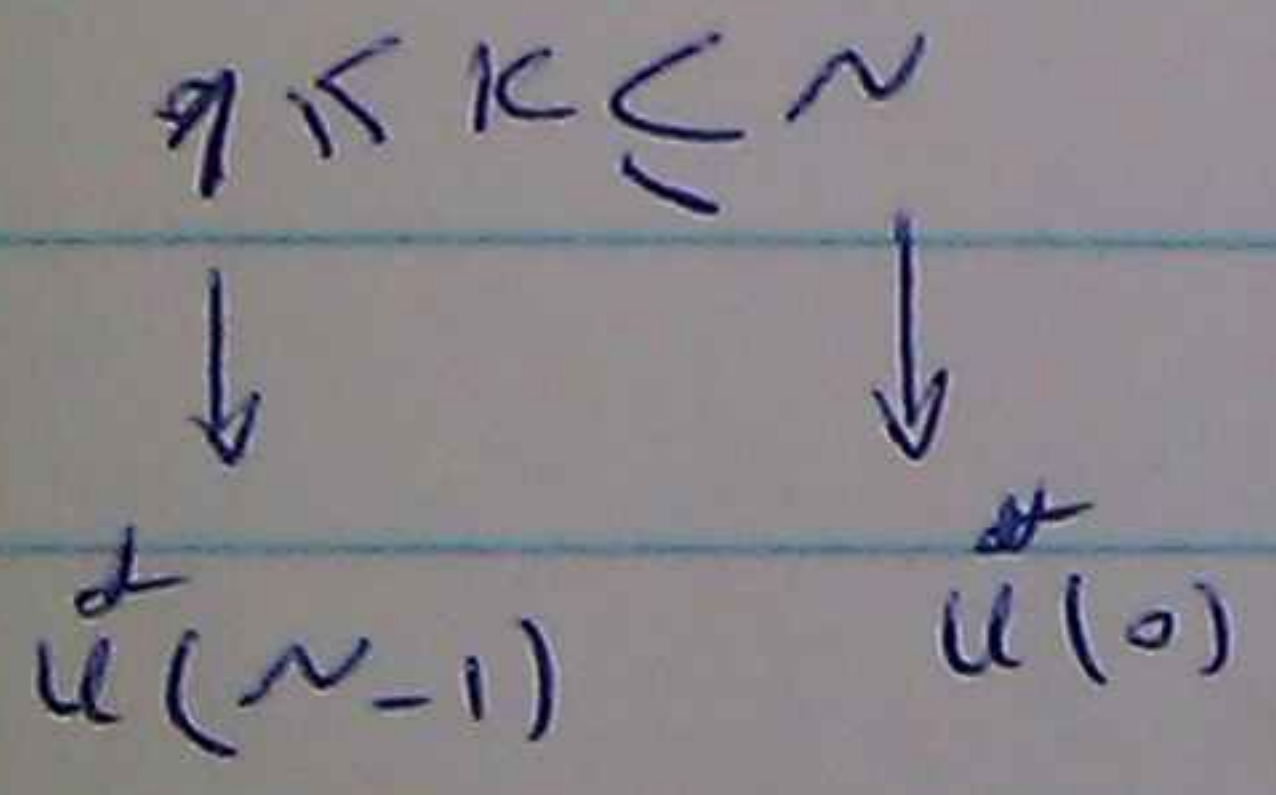 1 ≤ K ≤ N
↓ ↓
d d
u(N-1) u(0)